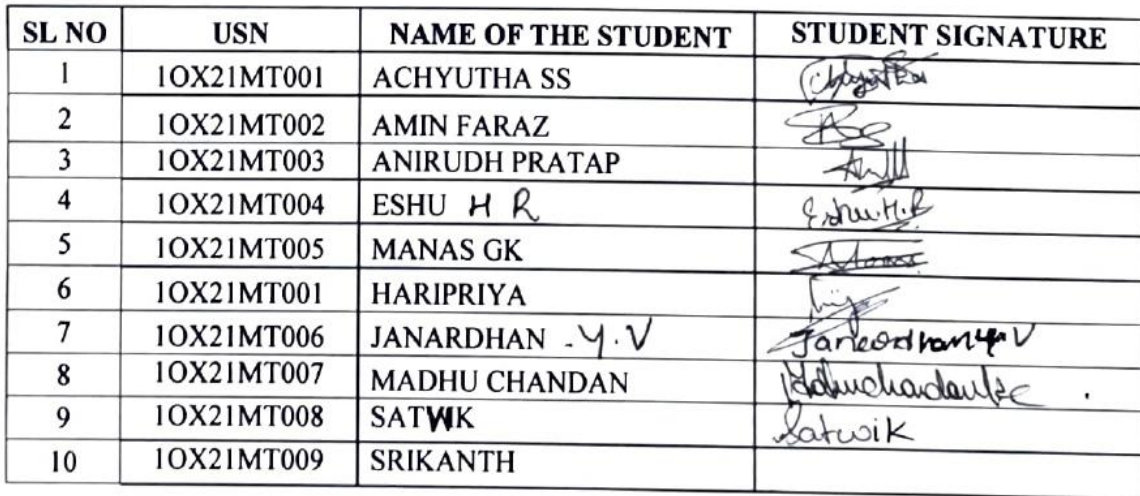 SL NO USN NAME OF THE STUDENT STUDENT SIGNATURE
1 1OX21MT001 ACHYUTHA SS
2 1OX21MT002 AMIN FARAZ
3 1OX21MT003 ANIRUDH PRATAP
4 1OX21MT004 ESHU H R Eshu.H.R
5 1OX21MT005 MANAS GK
6 1OX21MT001 HARIPRIYA
7 1OX21MT006 JANARDHAN - Y.V Janardhan Y.V
8 1OX21MT007 MADHU CHANDAN
9 1OX21MT008 SATWIK Satwik
10 1OX21MT009 SRIKANTH